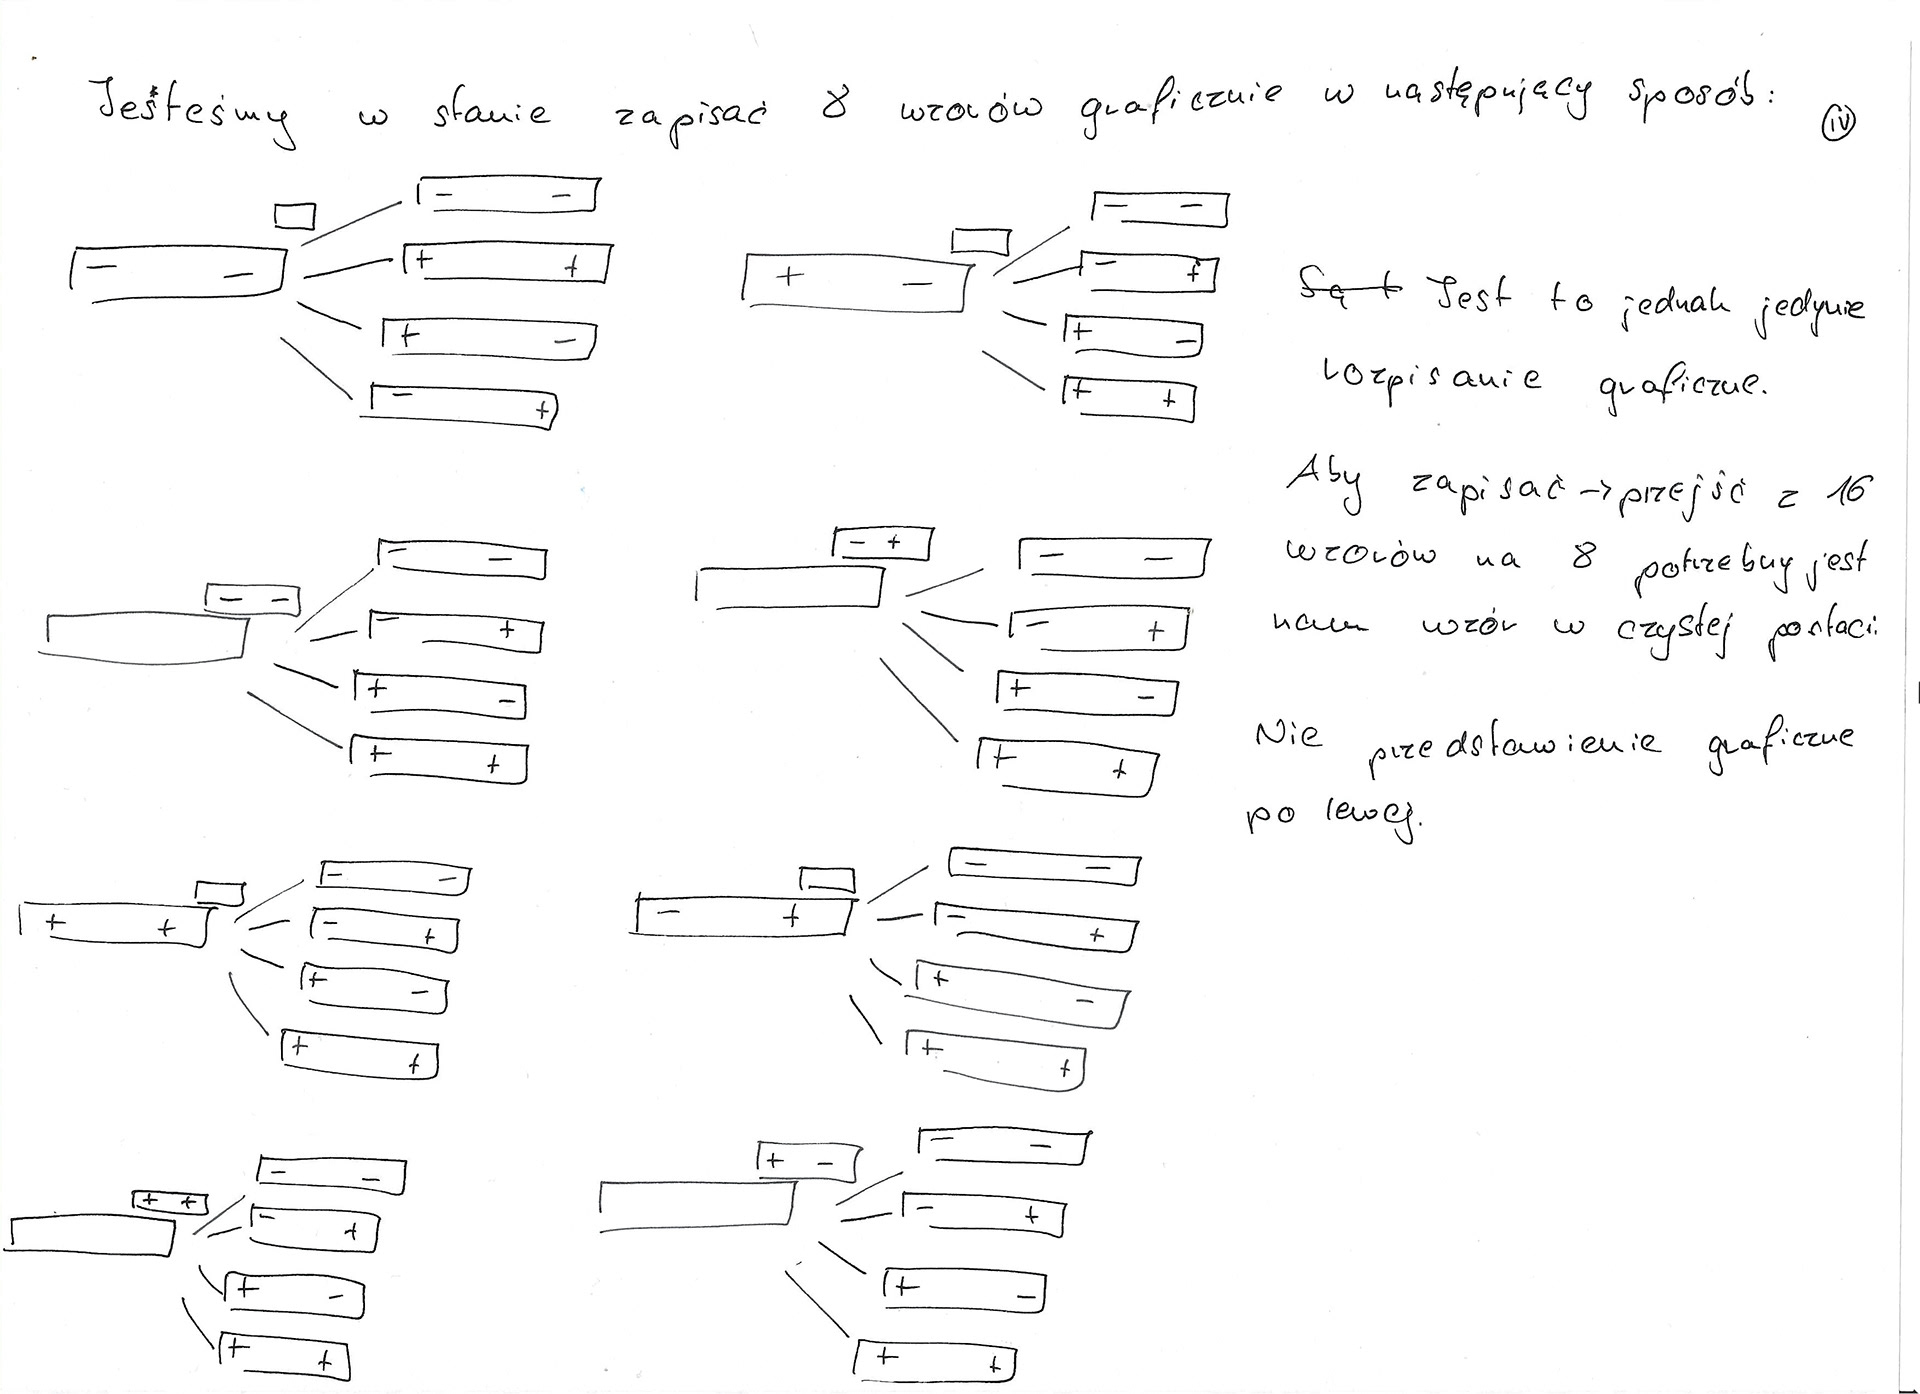 Jesteśmy w stanie zapisać 8 wzorów graficznie w następujący sposób:
IV
- -
- -
+ +
+ -
- +
+ -
- -
- +
+ -
+ +
Są t Jest to jednak jedynie
rozpisanie graficzne.
Aby zapisać → przejść z 16
wzorów na 8 potrzebny jest
nam wzór w czystej postaci.
Nie przedstawienie graficzne
po lewej.
- -
- -
- +
+ -
+ +
- +
- -
- +
+ -
+ +
+ +
- -
- +
+ -
+ +
- +
- -
- +
+ -
+ +
+ +
- -
- +
+ -
+ +
+ -
- -
- +
+ -
+ +